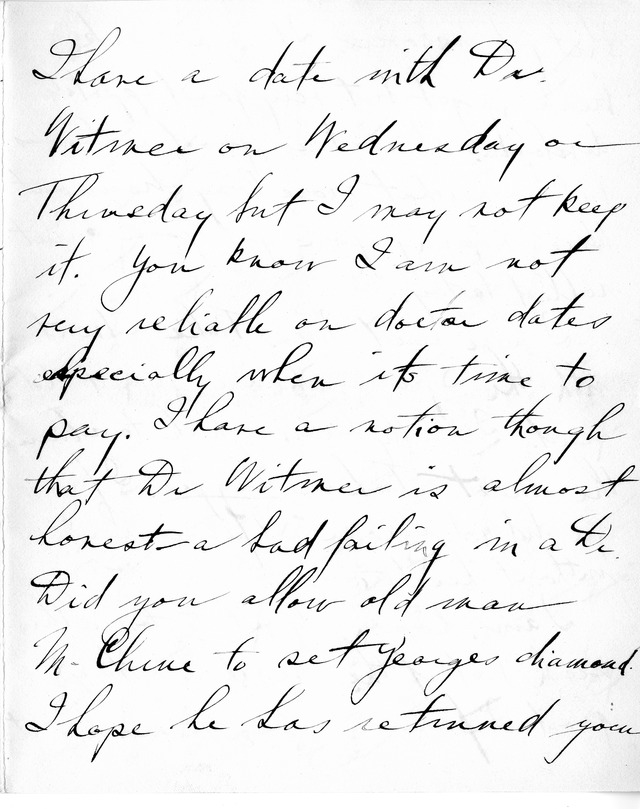 I have a date with Dr.
Witmer on Wednesday or
Thursday but I may not keep
it. You know I am not
very reliable on doctor dates
especially when its time to
pay. I have a notion though
that Dr Witmer is almost
honest - a bad failing in a Dr.
Did you allow old man
to set Georges diamond.
I hope he has returned your